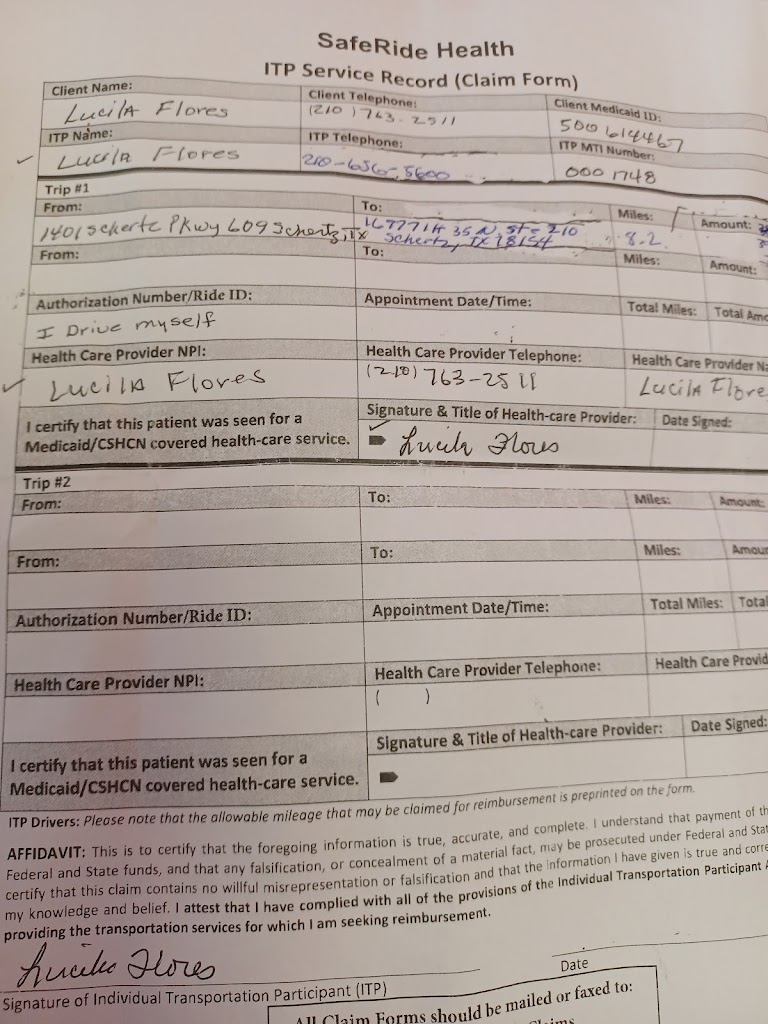 SafeRide Health
ITP Service Record (Claim Form)
Client Name: Client Telephone: Client Medicaid ID:
Lucila Flores (210) 763-2511 500614467
ITP Name: ITP Telephone: ITP MTI Number:
Lucila Flores 210-656-5600 0001748
Trip #1
From: To: Miles: Amount:
1401 Schertz Pkwy 609 Schertz, TX 16777 IH 35 N, St - 210 8.2
Schertz, TX 78154
From: To: Miles: Amount:
Authorization Number/Ride ID: Appointment Date/Time: Total Miles: Total Amo
I Drive myself
Health Care Provider NPI: Health Care Provider Telephone: Health Care Provider Na
Lucila Flores (210) 763-2511 Lucila Flore
I certify that this patient was seen for a Signature & Title of Health-care Provider: Date Signed:
Medicaid/CSHCN covered health-care service. Lucila Flores
Trip #2
From: To: Miles: Amount:
From: To: Miles: Amou
Authorization Number/Ride ID: Appointment Date/Time: Total Miles: Total
Health Care Provider NPI: Health Care Provider Telephone: Health Care Provid
( )
I certify that this patient was seen for a Signature & Title of Health-care Provider: Date Signed:
Medicaid/CSHCN covered health-care service.
ITP Drivers: Please note that the allowable mileage that may be claimed for reimbursement is preprinted on the form.
AFFIDAVIT: This is to certify that the foregoing information is true, accurate, and complete. I understand that payment of th
Federal and State funds, and that any falsification, or concealment of a material fact, may be prosecuted under Federal and Stat
certify that this claim contains no willful misrepresentation or falsification and that the information I have given is true and corre
my knowledge and belief. I attest that I have complied with all of the provisions of the Individual Transportation Participant A
providing the transportation services for which I am seeking reimbursement.
Lucila Flores
Signature of Individual Transportation Participant (ITP) Date
All Claim Forms should be mailed or faxed to: